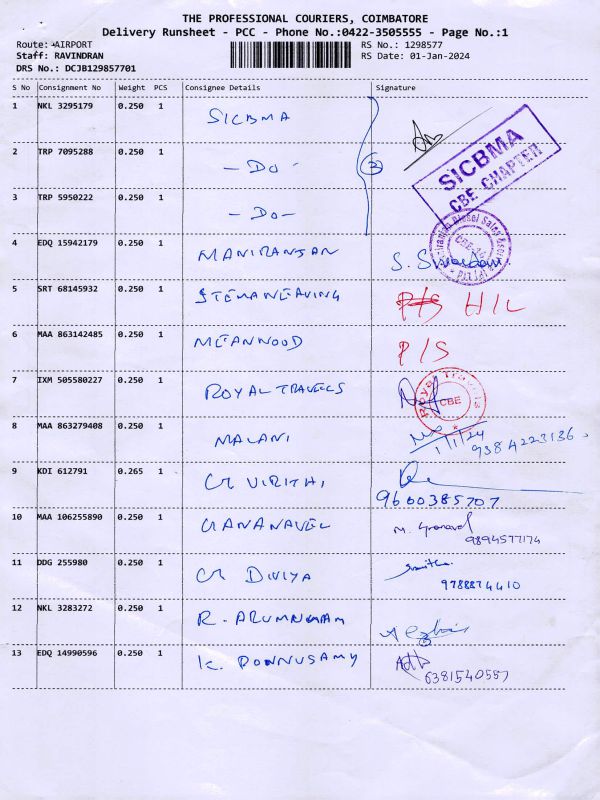 THE PROFESSIONAL COURIERS, COIMBATORE
Delivery Runsheet - PCC - Phone No.:0422-3505555 - Page No.:1
Route: AIRPORT
RS No.: 1298577
Staff: RAVINDRAN
RS Date: 01-Jan-2024
DRS No.: DCJB129857701
S No Consignment No Weight PCS Consignee Details Signature
1 NKL 3295179 0.250 1 SICBMA
SICBMA
CBE CHAPTER
2 TRP 7095288 0.250 1 - DO - 3
3 TRP 5950222 0.250 1 - DO -
4 EDQ 15942179 0.250 1 MANIRANJAN S.
5 SRT 68145932 0.250 1 P/S H/L
6 MAA 863142485 0.250 1 P/S
7 IXM 505580227 0.250 1 ROYAL TRAVELS
Royal Travels
CBE
8 MAA 863279408 0.250 1 MALANI 1/1/24
9384223136
9 KDI 612791 0.265 1 VIRITHI
9600385707
10 MAA 106255890 0.250 1 GANANAVEL M.
9894577174
11 DDG 255980 0.250 1 DIVIYA
9788874410
12 NKL 3283272 0.250 1 R. ARUMUGAM
13 EDQ 14990596 0.250 1 K. PONNUSAMY
6381540587